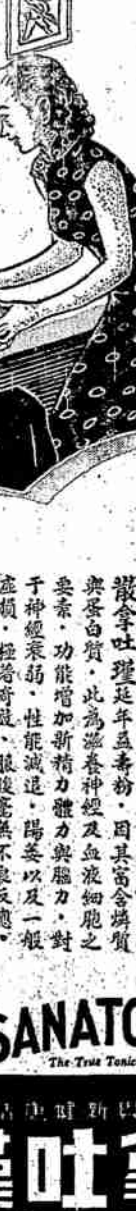 散拿吐瑾延年益壽粉．因其富含燐質
與蛋白質．此為滋養神經及血液細胞之
要素．功能增加新精力體力與腦力．對
于神經衰弱．性能減退．陽萎以及一般
虛損．極著奇效．服後毫無不良反應．
SANATO
The True Tonic
吐